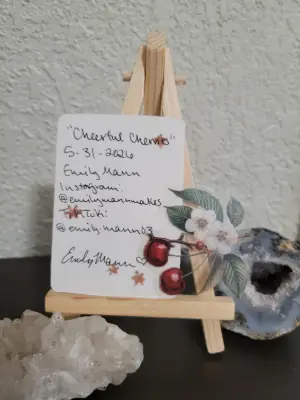 "Cheerful Cherries"
5-31-2026
Emily Mann
Instagram:
@emilymannmakes
TikTok:
@emily.mann03
Emily Mann